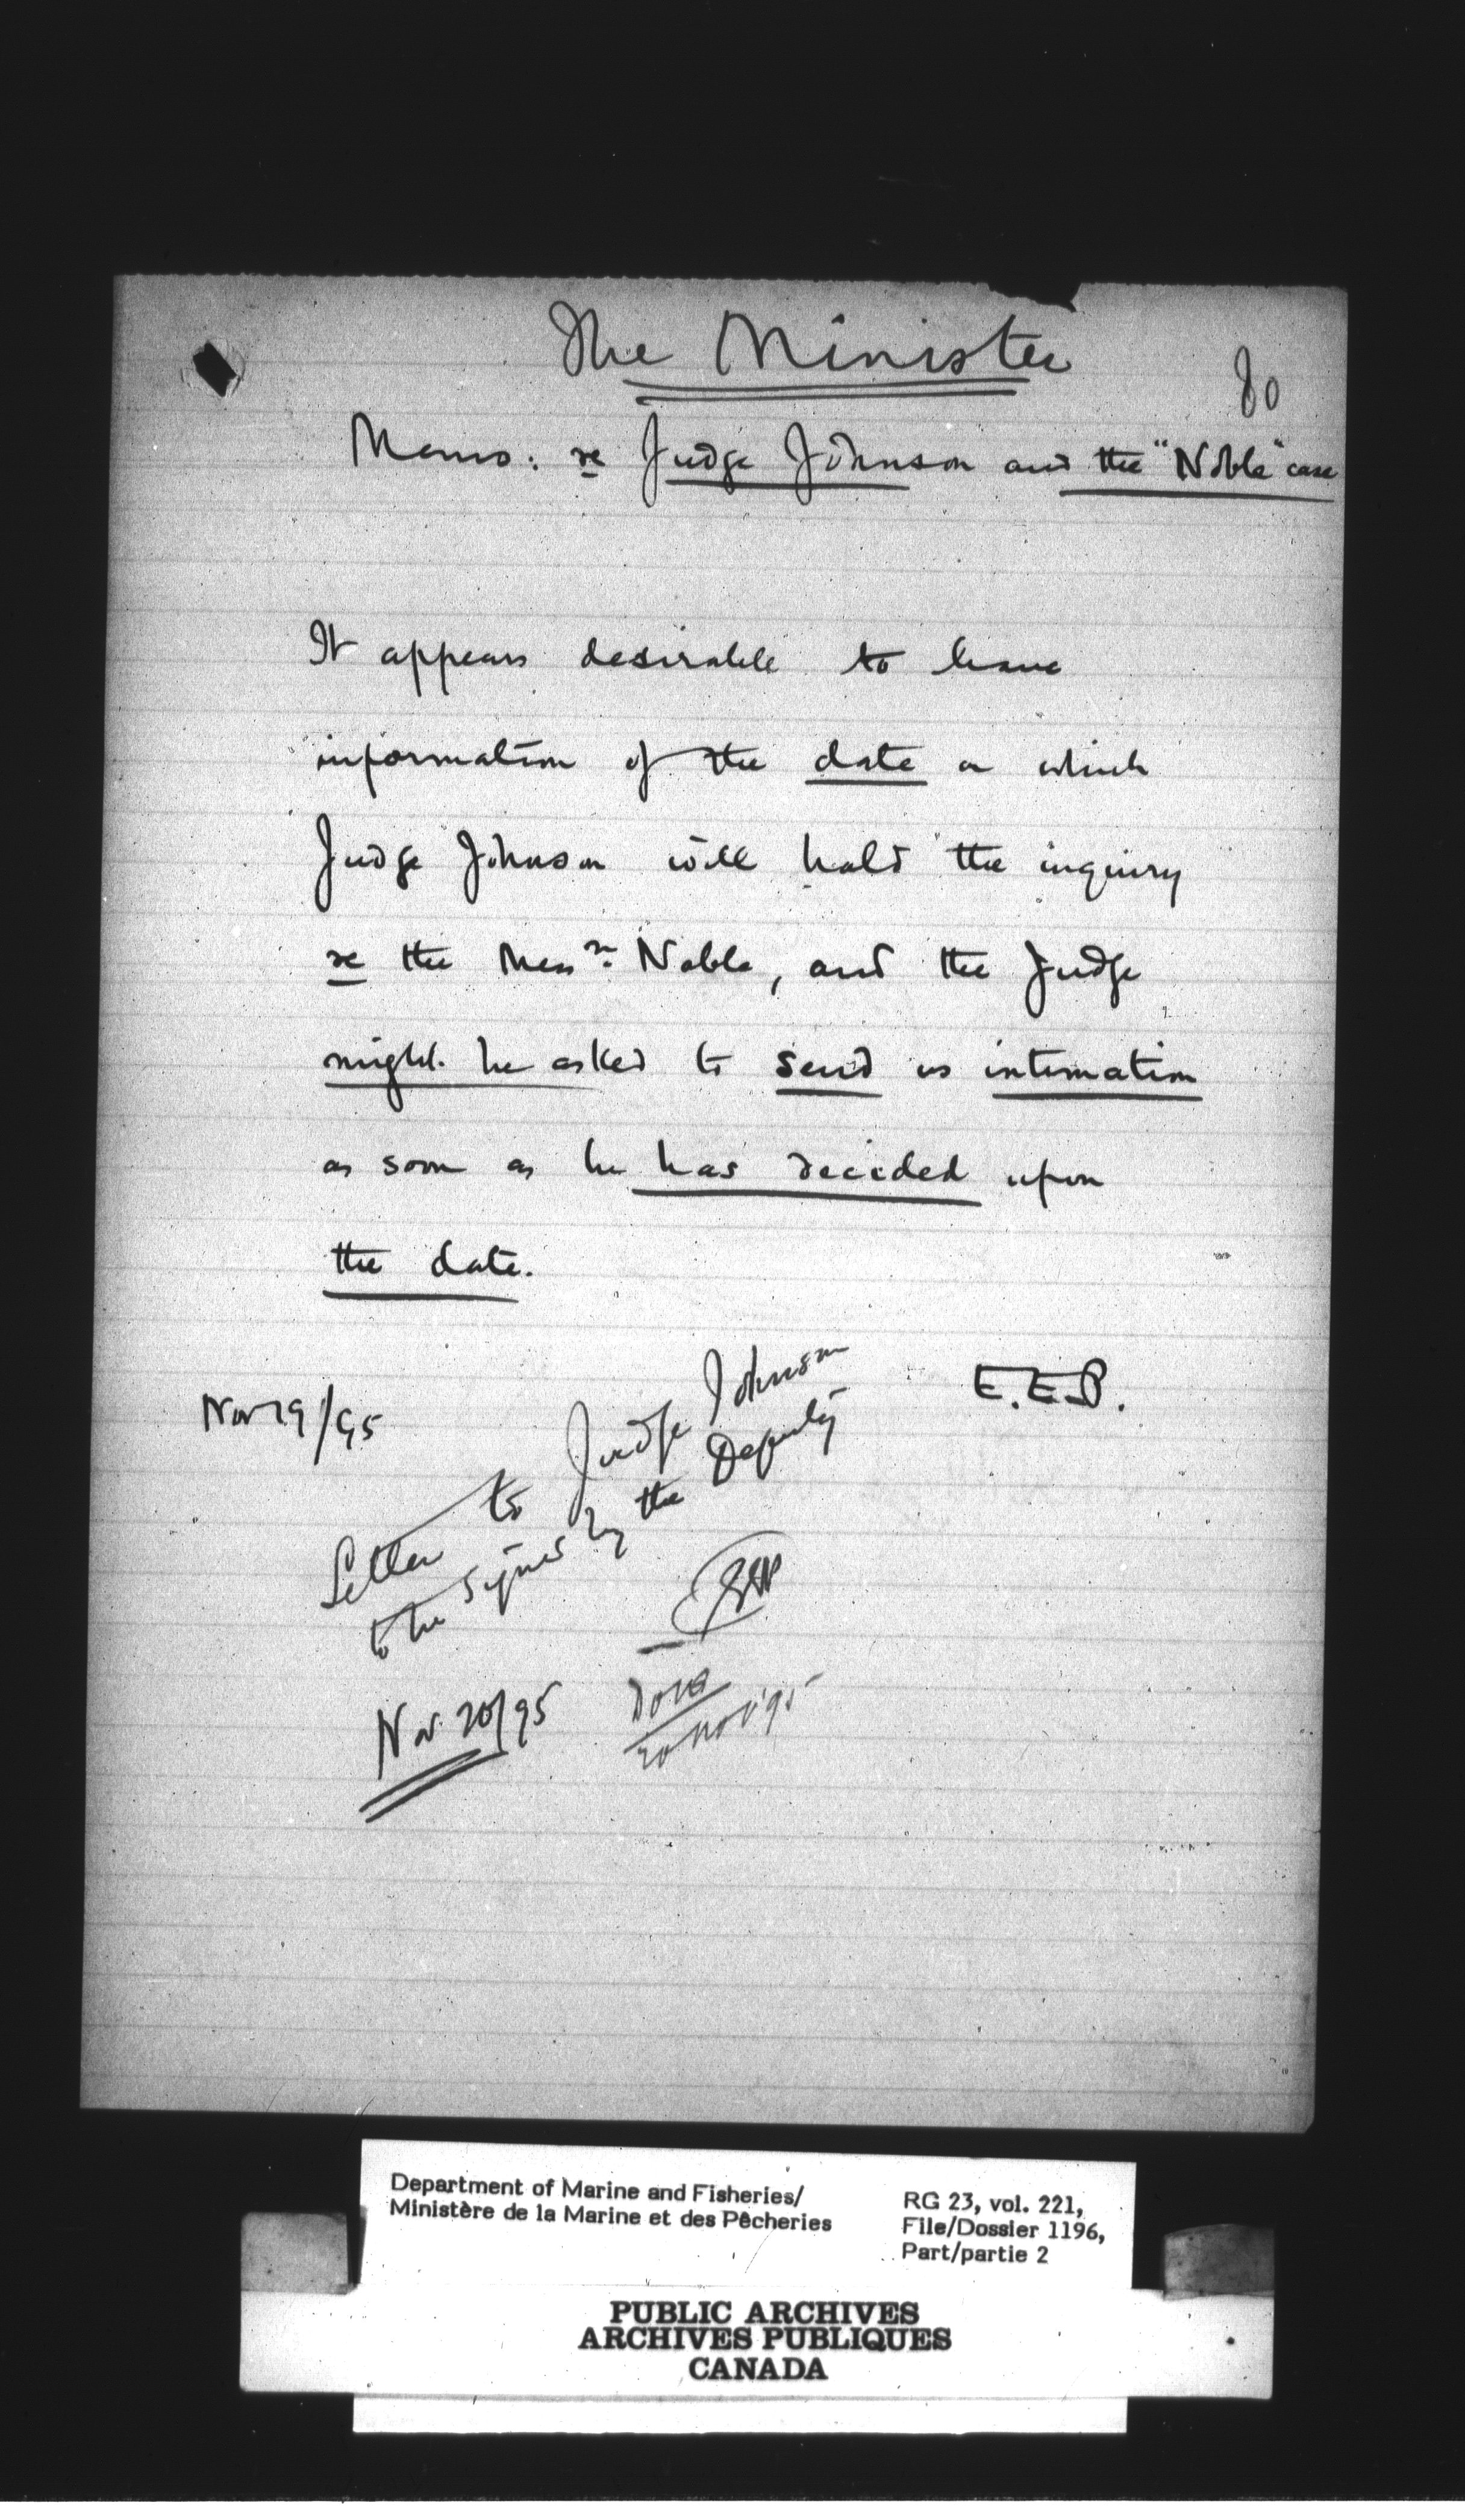 The Minister
80
Memo: re Judge Johnson and the "Noble" case
It appears desirable to have
information of the date on which
Judge Johnson will hold the inquiry
re the Messrs. Noble, and the Judge
might be asked to send us intimation
as soon as he has decided upon
the date.
Nov 19/95
E.E.P.
Letter to Judge Johnson
to be signed by the Deputy
Nov. 20/95
Done
20 Nov '95
Department of Marine and Fisheries/
Ministère de la Marine et des Pêcheries
RG 23, vol. 221,
File/Dossier 1196,
Part/partie 2
PUBLIC ARCHIVES
ARCHIVES PUBLIQUES
CANADA